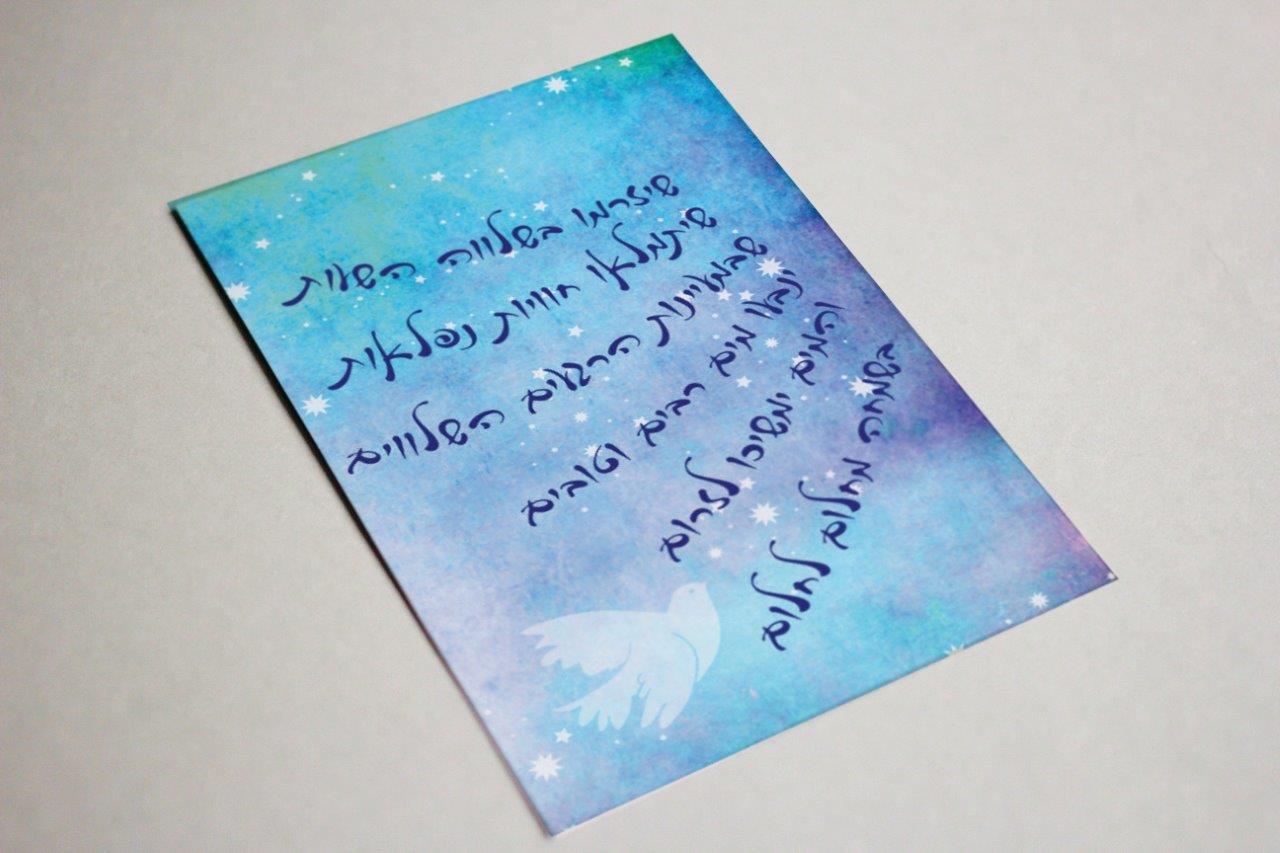 שיזרמו בשלווה השעות
שיתמלאו חוויות נפלאות
שבמעיינות הרגעים השלווים
ינבעו מים רבים וטובים
והמים ימשיכו לזרום
בשמחה מחלום לחלום